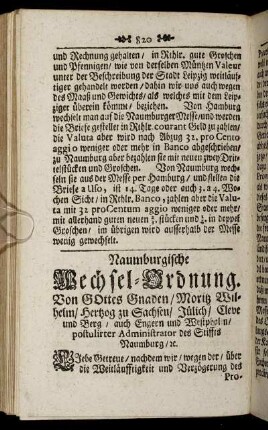 820
und Rechnung gehalten / in Rthlr. gute Groschen
und Pfennigen / wie von derselben Müntzen Valeur
unter der Beschreibung der Stadt Leipzig weitläuf-
tiger gehandelt worden / dahin wir uns auch wegen
des Maaß und Gewichts / als welches mit dem Leip-
ziger überein kömmt / beziehen. Von Hamburg
wechselt man auf die Naumburger Messe / und werden
die Briefe gestellet in Rthlr. courant Geld zu zahlen /
die Valuta aber wird nach Abzug 32. pro Cento
aggio weniger oder mehr in Banco abgeschrieben /
zu Naumburg aber bezahlen sie mit neuen zwey Drit-
telstücken und Groschen. Von Naumburg wech-
seln sie aus der Messe per Hamburg / und stellen die
Briefe a Uso, ist 14. Tage oder auch 3. a 4. Wo-
chen Sicht / in Rthlr. Banco, zahlen aber die Valu-
ta mit 32 pro Centum aggio weniger oder mehr /
mit allerhand guten neuen ⅔. stücken und ⅓. in doppel
Groschen / im übrigen wird ausserhalb der Messe
wenig gewechselt.
Naumburgische
Wechsel-Ordnung.
Von GOttes Gnaden / Moritz Wil-
helm / Hertzog zu Sachsen / Jülich / Cleve
und Berg / auch Engern und Westpholn /
postulirter Administrator des Stiffts
Naumburg / ꝛc.
LIebe Getreue / nachdem wir / wegen der / über
die Weitläufftigkeit und Verzögerung des
Pro-